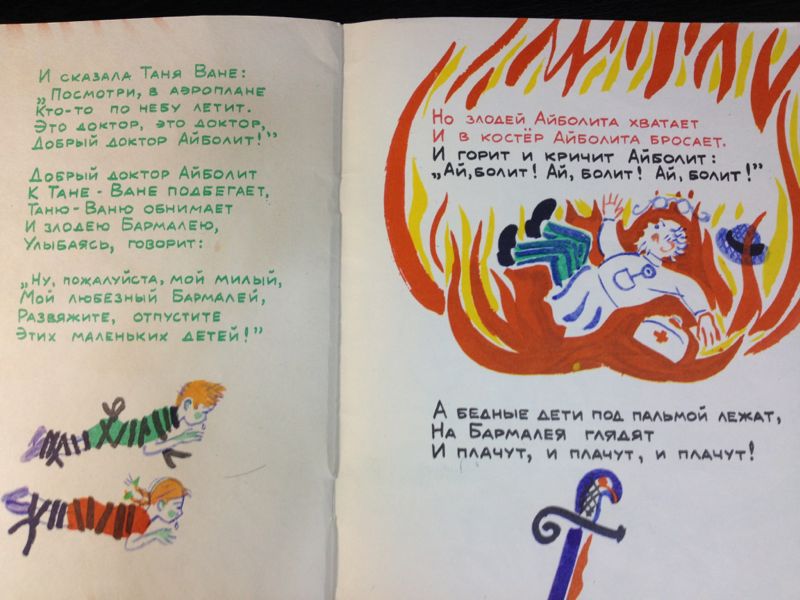 И сказала Таня Ване:
„Посмотри, в аэроплане
Кто-то по небу летит.
Это доктор, это доктор,
Добрый доктор Айболит!”
Добрый доктор Айболит
К Тане - Ване подбегает,
Таню-Ваню обнимает
И злодею Бармалею,
Улыбаясь, говорит:
„Ну, пожалуйста, мой милый,
Мой любезный Бармалей,
Развяжите, отпустите
Этих маленьких детей!”
Но злодей Айболита хватает
И в костёр Айболита бросает.
И горит и кричит Айболит:
„Ай, болит! Ай, болит! Ай, болит!”
А бедные дети под пальмой лежат,
На Бармалея глядят
И плачут, и плачут, и плачут!